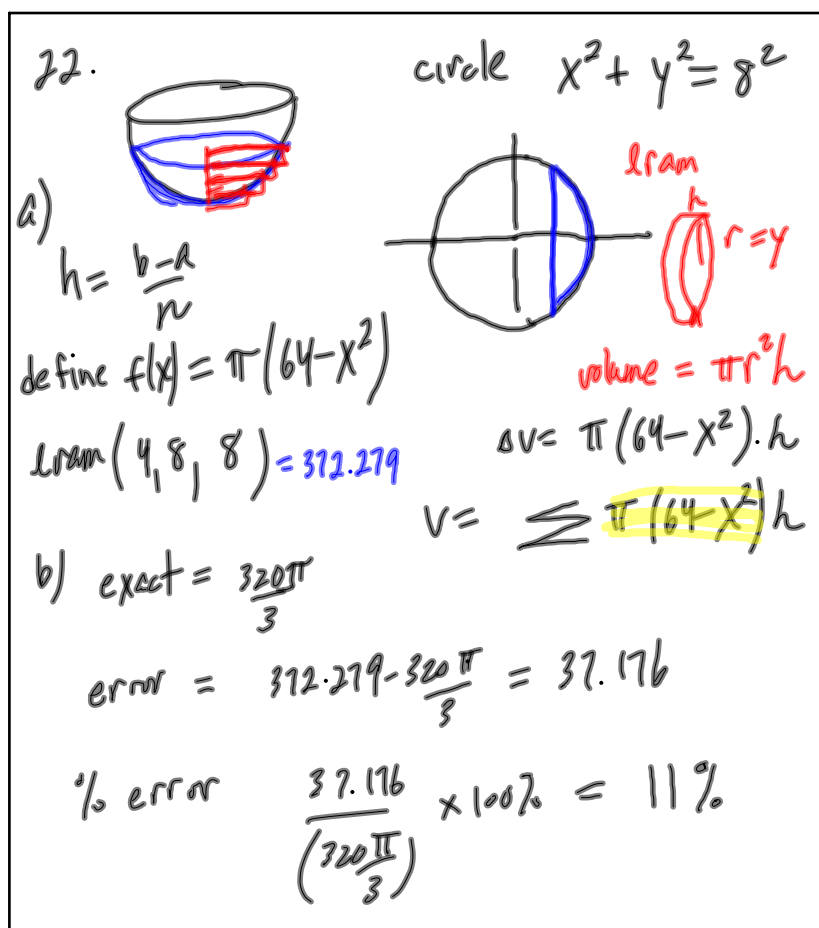 22.
circle x² + y² = 8²
lram
h
r = y
a)
h = b-a/n
define f(x) = π(64-x²)
volume = πr²h
lram(4, 8, 8) = 372.279
ΔV = π(64-x²)·h
V = Σ π(64-x²)h
b) exact = 320π/3
error = 372.279 - 320π/3 = 37.176
% error 37.176/(320π/3) ×100% = 11%